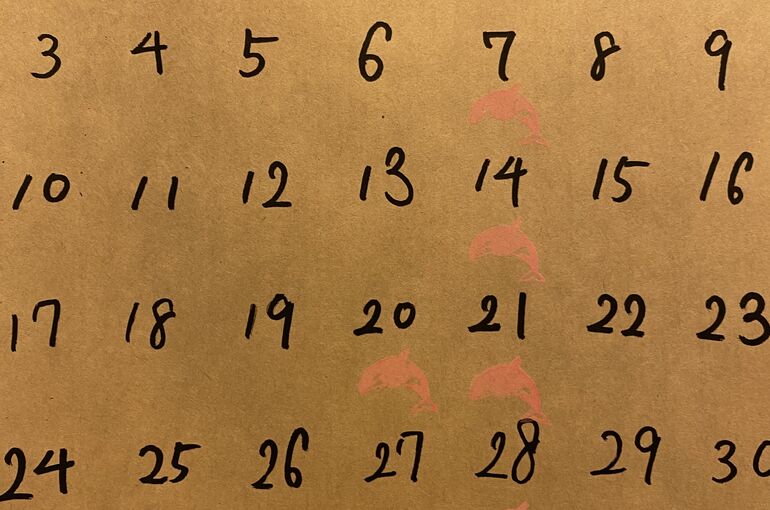 3 4 5 6 7 8 9
10 11 12 13 14 15 16
17 18 19 20 21 22 23
24 25 26 27 28 29 30